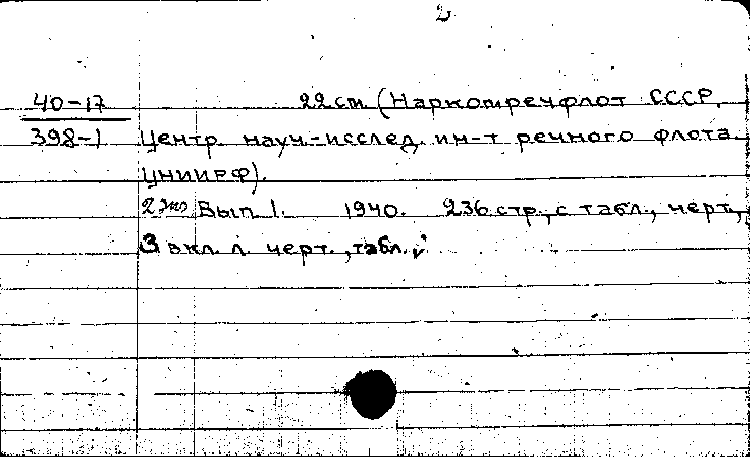 2
40-17 22 cm (Наркомречфлот СССР.
398-1 Центр. науч.-исслед. ин-т речного флота
ЦНИИРФ).
2 экз Вып. 1. 1940. 236 стр., с табл., черт.,
3 вкл. л. черт., табл.